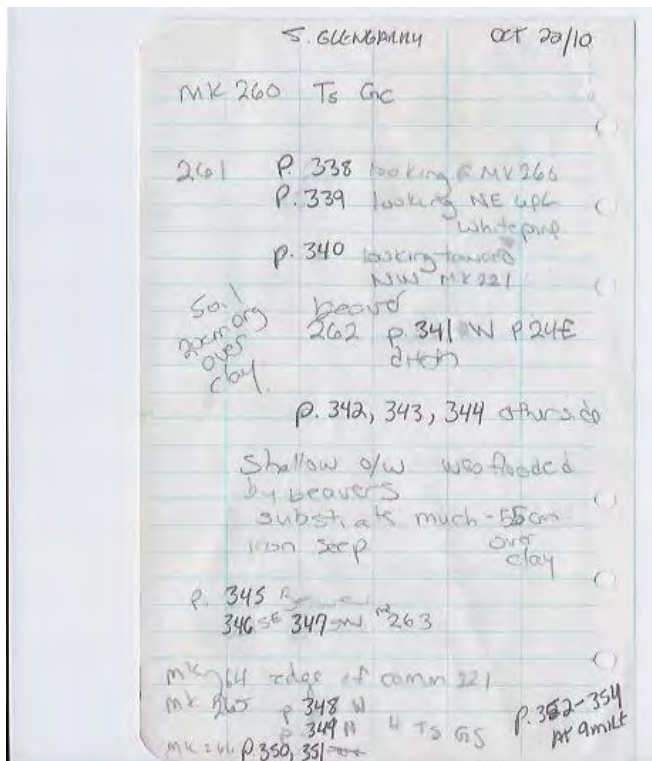 S. GLENGARRY OCT 22/10
MK 260 Ts Gc
261 P. 338 looking @ MK266
P. 339 looking NE upl
white pine
p. 340 looking toward
NW MK 221
Soil
20cm org
over
clay
beaver
262 p. 341 W P 24E
ditch
p. 342, 343, 344 other side
Shallow o/w was flooded
by beavers
substrate much - 55cm
iron seep over
clay
p. 345
346 SE 347 SW 263
edge of comm 221
MK 265 p 348 W
p 349 N 4 Ts GS
MK 266 p. 350, 351
p. 352-354
At 9milt